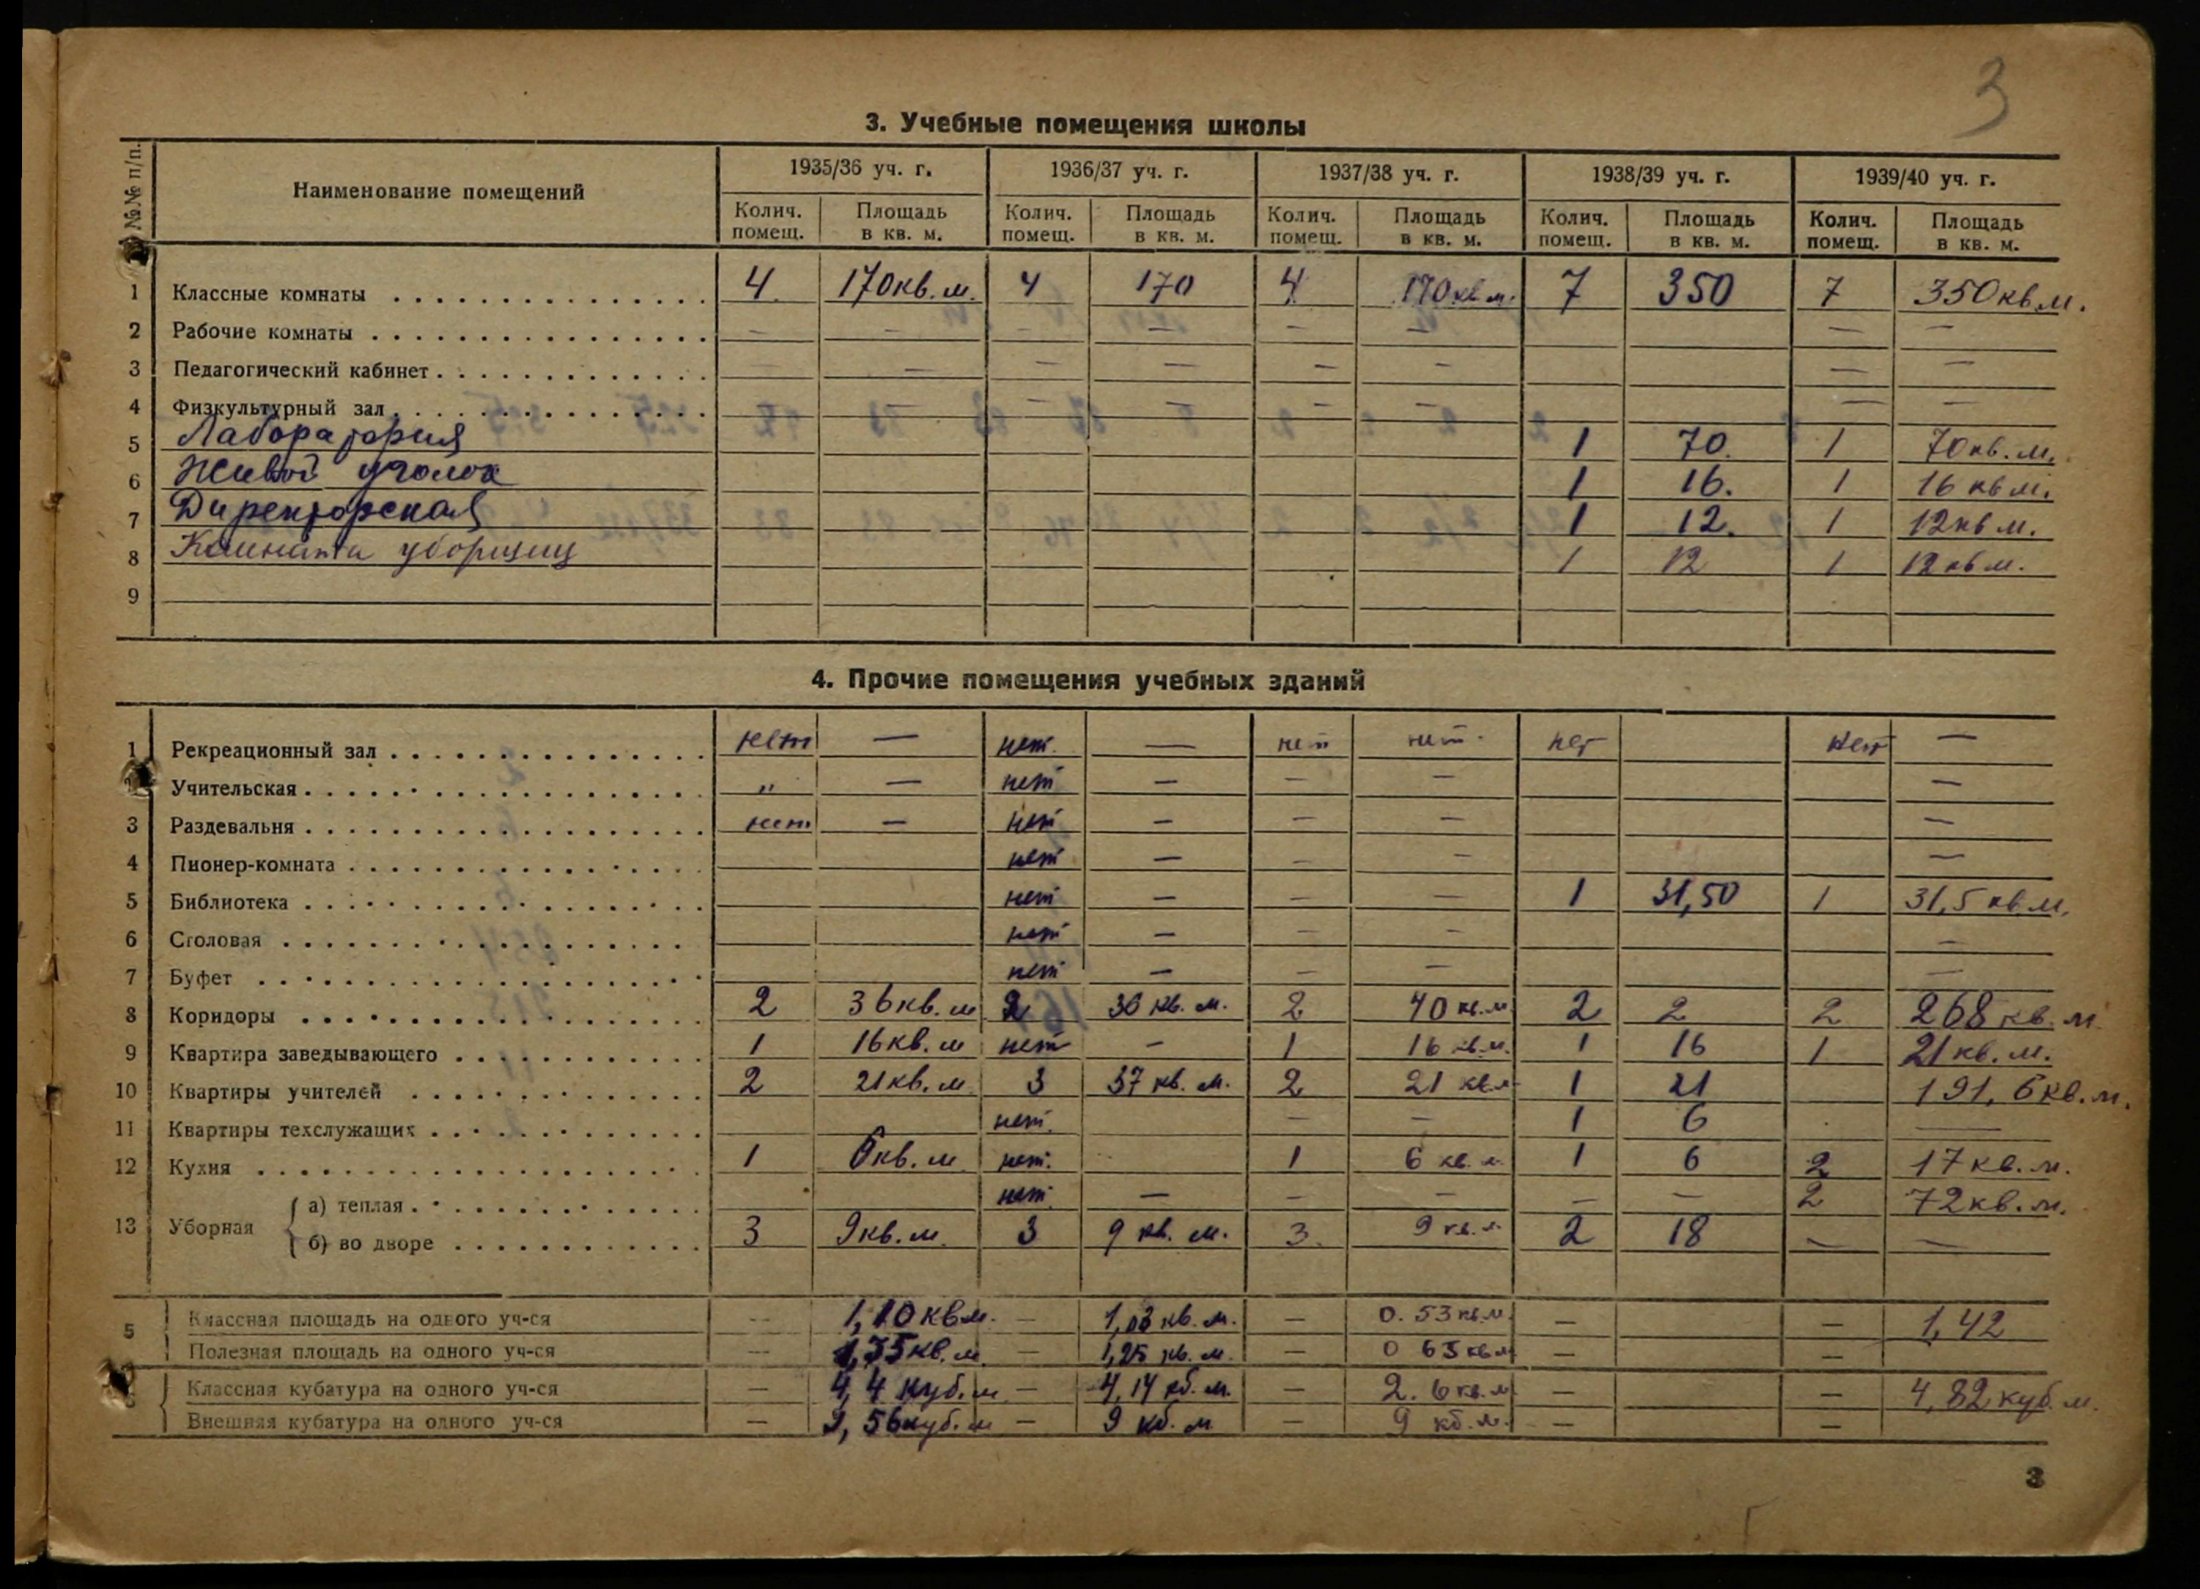 3
3. Учебные помещения школы
№№ п/п. Наименование помещений 1935/36 уч. г. 1936/37 уч. г. 1937/38 уч. г. 1938/39 уч. г. 1939/40 уч. г.
Колич. помещ. Площадь в кв. м. Колич. помещ. Площадь в кв. м. Колич. помещ. Площадь в кв. м. Колич. помещ. Площадь в кв. м. Колич. помещ. Площадь в кв. м.
1 Классные комнаты 4 170 кв. м. 4 170 4 170 кв м. 7 350 7 350 кв м.
2 Рабочие комнаты — — — — — — — —
3 Педагогический кабинет — — — — — — — —
4 Физкультурный зал — — — — — — —
5 Лаборатория 1 70. 1 70 кв. м.
6 Живой уголок 1 16. 1 16 кв м.
7 Директорская 1 12. 1 12 кв м.
8 Комната уборщиц 1 12 1 12 кв м.
9
4. Прочие помещения учебных зданий
1 Рекреационный зал нет — нет. — нет нет. нет нет —
Учительская " — нет — — — —
3 Раздевальня нет — нет — — — —
4 Пионер-комната нет — — — —
5 Библиотека нет — — — 1 31,50 1 31,5 кв м.
6 Столовая нет — — — —
7 Буфет нет — — — —
8 Коридоры 2 36 кв. м 2 36 кв. м. 2 40 кв. м 2 2 2 268 кв. м.
9 Квартира заведывающего 1 16 кв. м нет — 1 16 кв. м. 1 16 1 21 кв. м.
10 Квартиры учителей 2 21 кв. м. 3 37 кв. м. 2 21 кв. м 1 21 191,6 кв. м.
11 Квартиры техслужащих нет. — — 1 6 —
12 Кухня 1 6 кв. м. нет. 1 6 кв. м. 1 6 2 17 кв. м.
13 Уборная а) теплая нет — — — — — 2 72 кв. м.
б) во дворе 3 9 кв. м. 3 9 кв. м. 3. 9 кв. м. 2 18 — —
5 Классная площадь на одного уч-ся — 1,10 кв м. — 1,03 кв. м. — 0.53 кв м. — — 1,42
Полезная площадь на одного уч-ся — 1,35 кв. м. — 1,25 кв. м. — 0 63 кв м — —
Классная кубатура на одного уч-ся — 4,4 куб. м — 4,14 кб. м. — 2.6 кв. м — — 4,82 куб. м.
Внешняя кубатура на одного уч-ся — 9,56 куб. м — 9 кб. м — 9 кб. м. — —
3